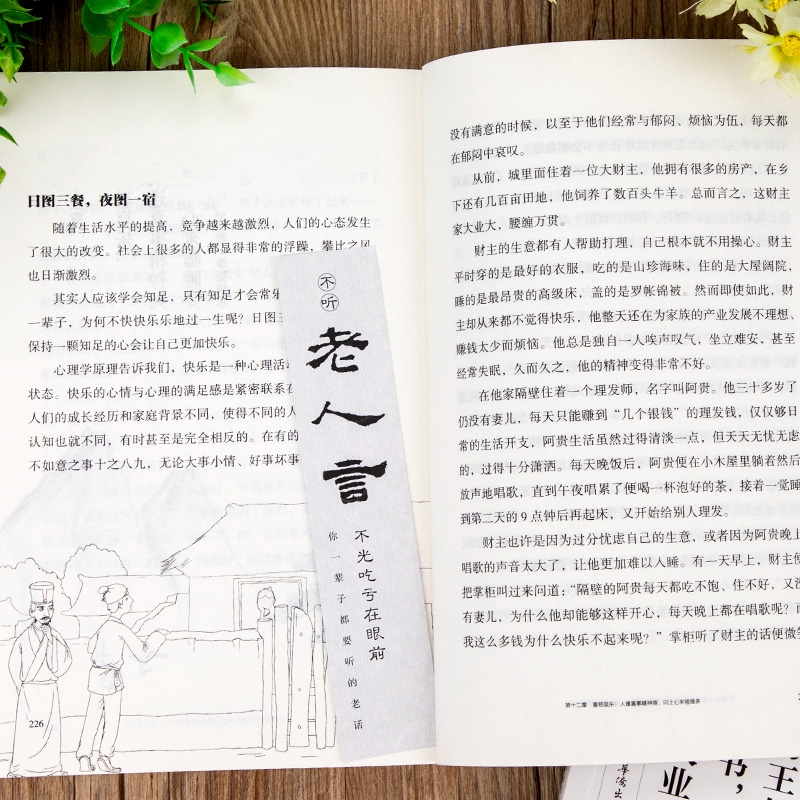 日图三餐，夜图一宿
随着生活水平的提高，竞争越来越激烈，人们的心态发生
了很大的改变。社会上很多的人都显得非常的浮躁，攀比之风
也日渐激烈。
其实人应该学会知足，只有知足才会常乐
一辈子，为何不快快乐乐地过一生呢？日图三
保持一颗知足的心会让自己更加快乐。
心理学原理告诉我们，快乐是一种心理活
状态。快乐的心情与心理的满足感是紧密联系在
人们的成长经历和家庭背景不同，使得不同的人
认知也就不同，有时甚至是完全相反的。在有的
不如意之事十之八九，无论大事小情、好事坏事
226
不听
老人言
不光吃亏在眼前
你一辈子都要听的老话
没有满意的时候，以至于他们经常与郁闷、烦恼为伍，每天都
在郁闷中哀叹。
从前，城里面住着一位大财主，他拥有很多的房产，在乡
下还有几百亩田地，他饲养了数百头牛羊。总而言之，这财主
家大业大，腰缠万贯。
财主的生意都有人帮助打理，自己根本就不用操心。财主
平时穿的是最好的衣服，吃的是山珍海味，住的是大屋阔院，
睡的是最昂贵的高级床，盖的是罗帐锦被。然而即使如此，财
主却从来都不觉得快乐，他整天还在为家族的产业发展不理想、
赚钱太少而烦恼。他总是独自一人唉声叹气，坐立难安，甚至
经常失眠，久而久之，他的精神变得非常不好。
在他家隔壁住着一个理发师，名字叫阿贵。他三十多岁了
仍没有妻儿，每天只能赚到“几个银钱”的理发钱，仅仅够日
常的生活开支，阿贵生活虽然过得清淡一点，但天天无忧无虑
的，过得十分潇洒。每天晚饭后，阿贵便在小木屋里躺着然后
放声地唱歌，直到午夜唱累了便喝一杯泡好的茶，接着一觉睡
到第二天的9点钟后再起床，又开始给别人理发。
财主也许是因为过分忧虑自己的生意，或者因为阿贵晚上
唱歌的声音太大了，让他更加难以入睡。有一天早上，财主便
把掌柜叫过来问道：“隔壁的阿贵每天都吃不饱、住不好，又没
有妻儿，为什么他却能够这样开心，每天晚上都在唱歌呢？而
我这么多钱为什么快乐不起来呢？”掌柜听了财主的话便微笑
第十二章 喜怒哀乐：人逢喜事精神爽，闷上心来瞌睡多